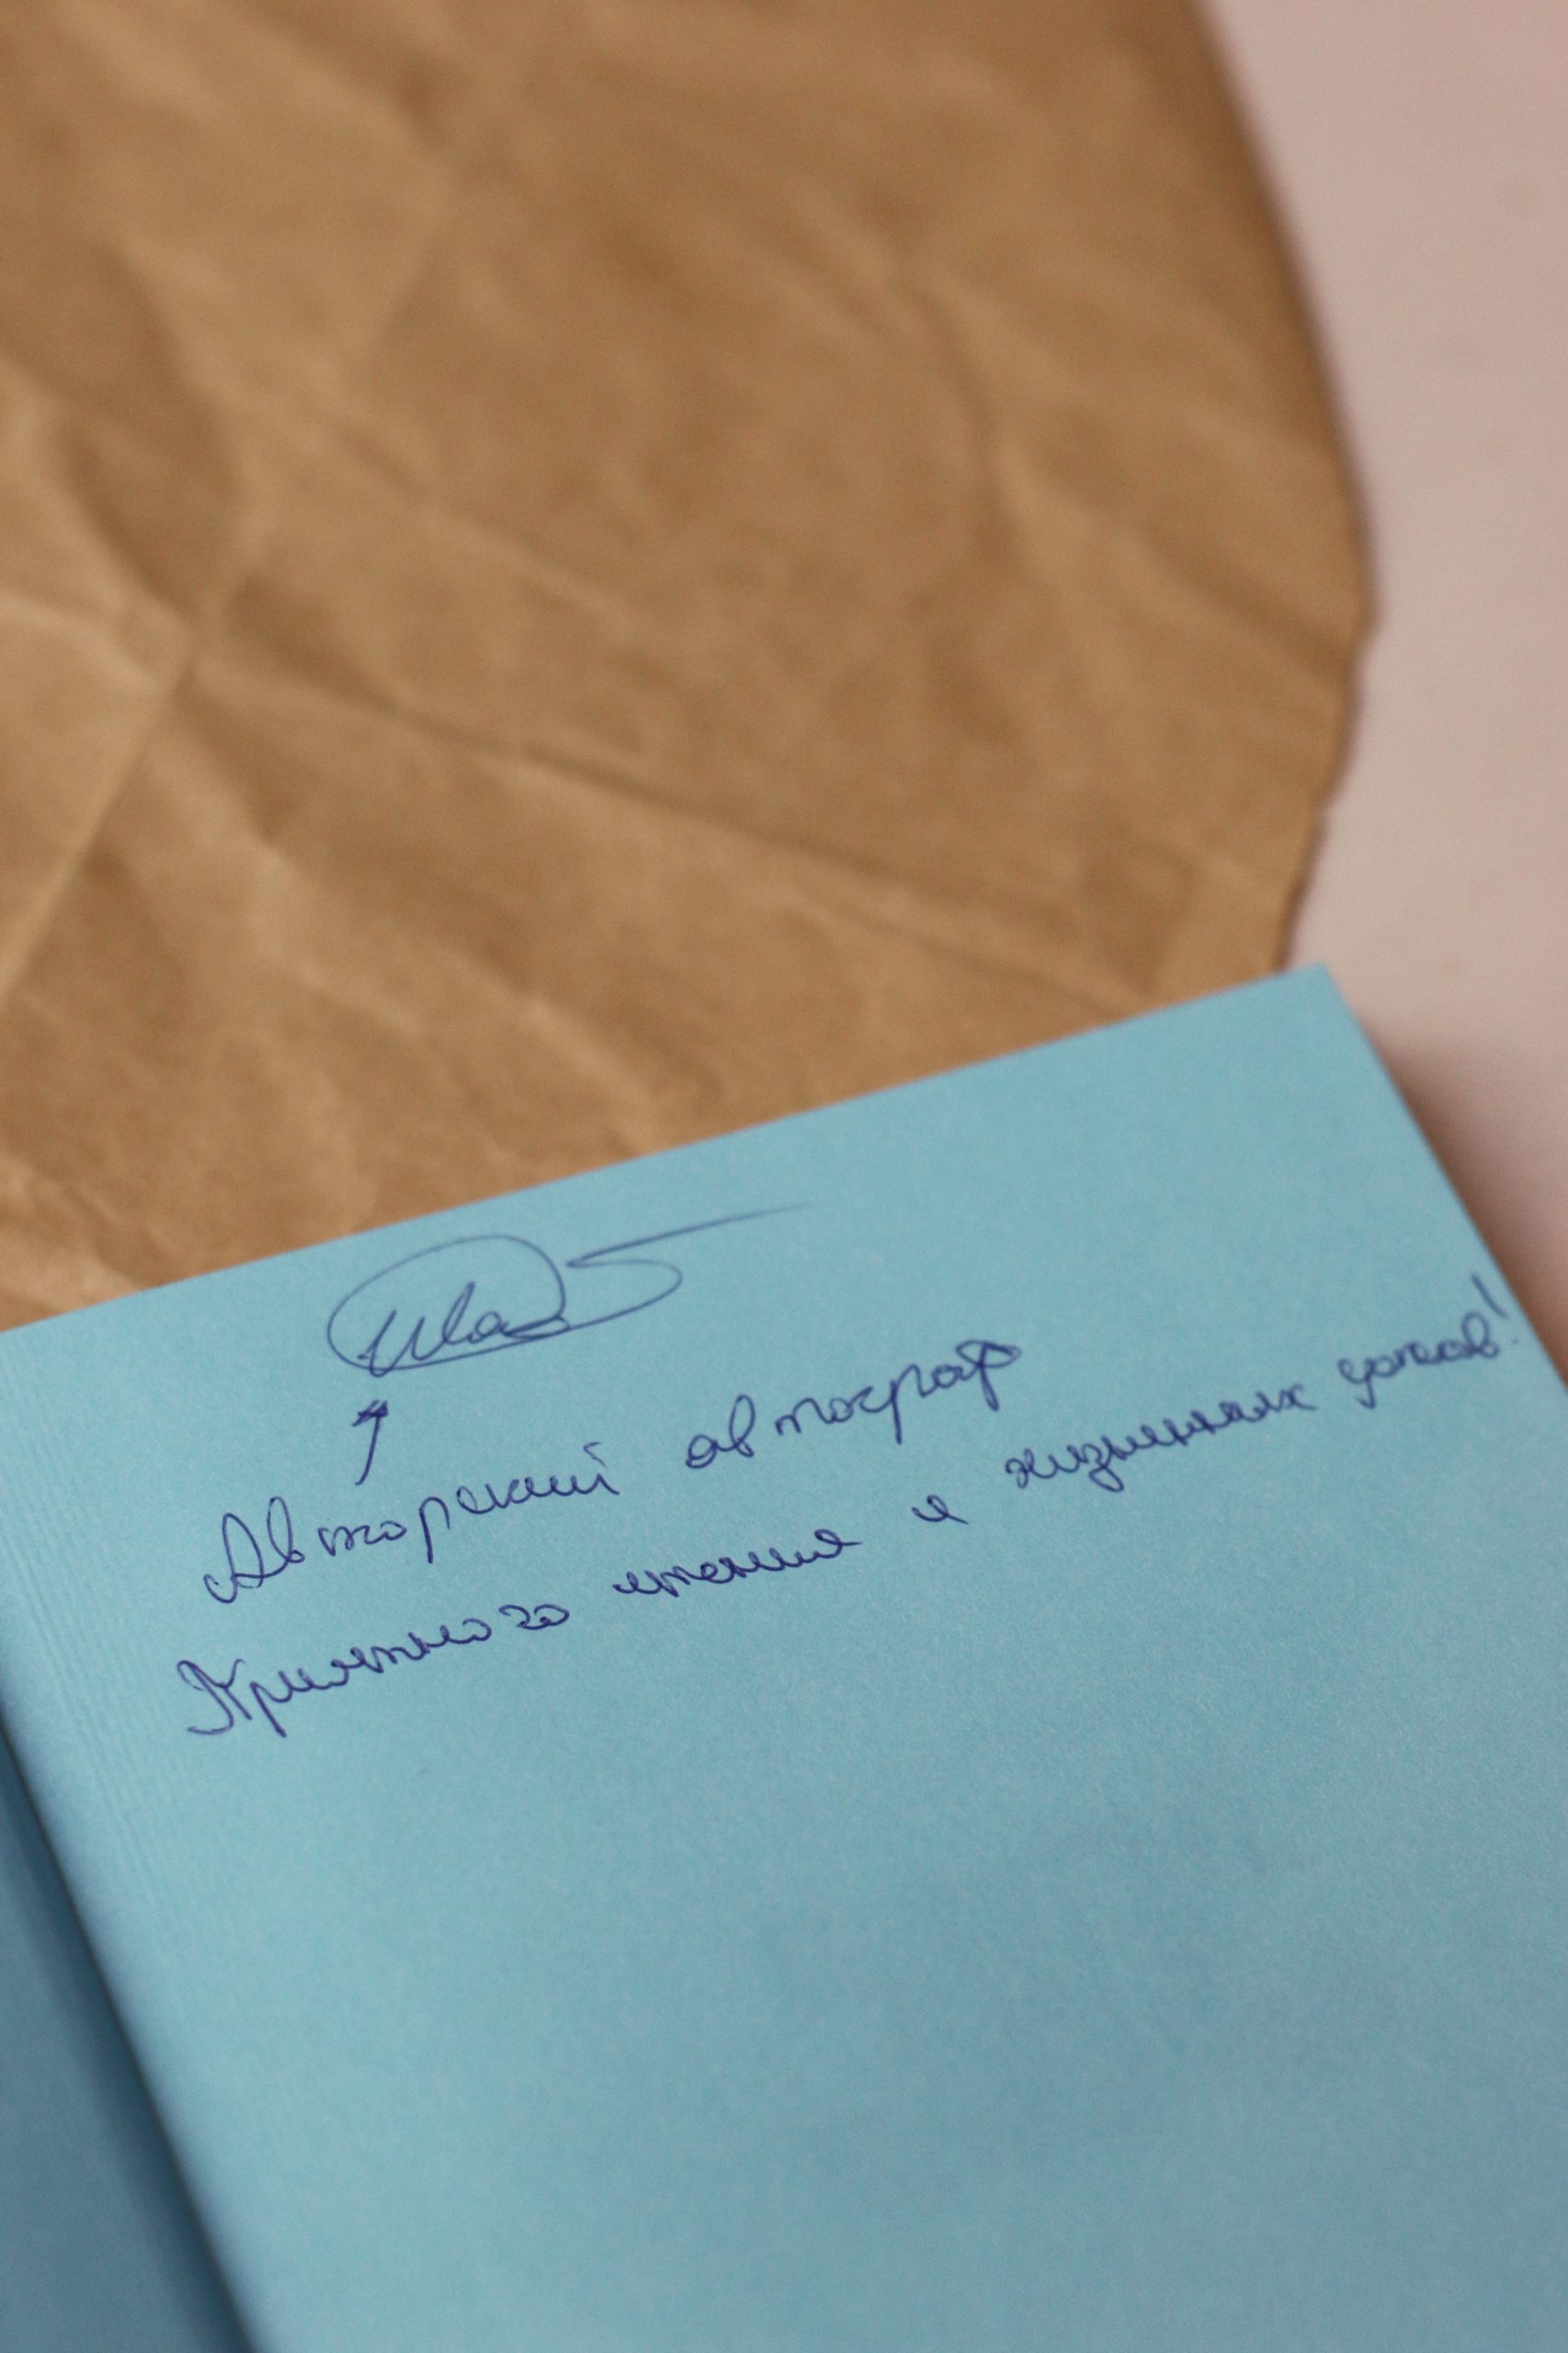 Авторский автограф
Приятного чтения и жизненных успехов!